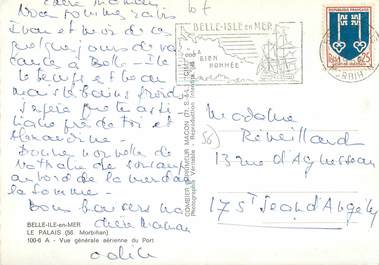 chère Maman
Nous sommes ravis
Ivan et moi de ce
quelques jours de va
cances à Belle-Ile
le temps est beau
mais les bains froids
J'espère que tu as ti
de toi et
Alexandrine -
Bonne nouvelle de
Nathalie de
au bord de la mer dans
la Somme -
Bons baisers ma
chère Maman
Odile
BELLE-ISLE en MER
LA BIEN
NOMMÉE
REPUBLIQUE FRANÇAISE
0,25
MORBIHAN
COMBIER IMPRIMEUR MACON (71. S.-&-L.) "CIM"
Photographie Véritable - Reproduction Interdite
Madame
(56) Réveillaud
13 rue d'Aguesseau
17 St Jean d'Angély
BELLE-ILE-en-MER
LE PALAIS (56. Morbihan)
100-6 A - Vue générale aérienne du Port